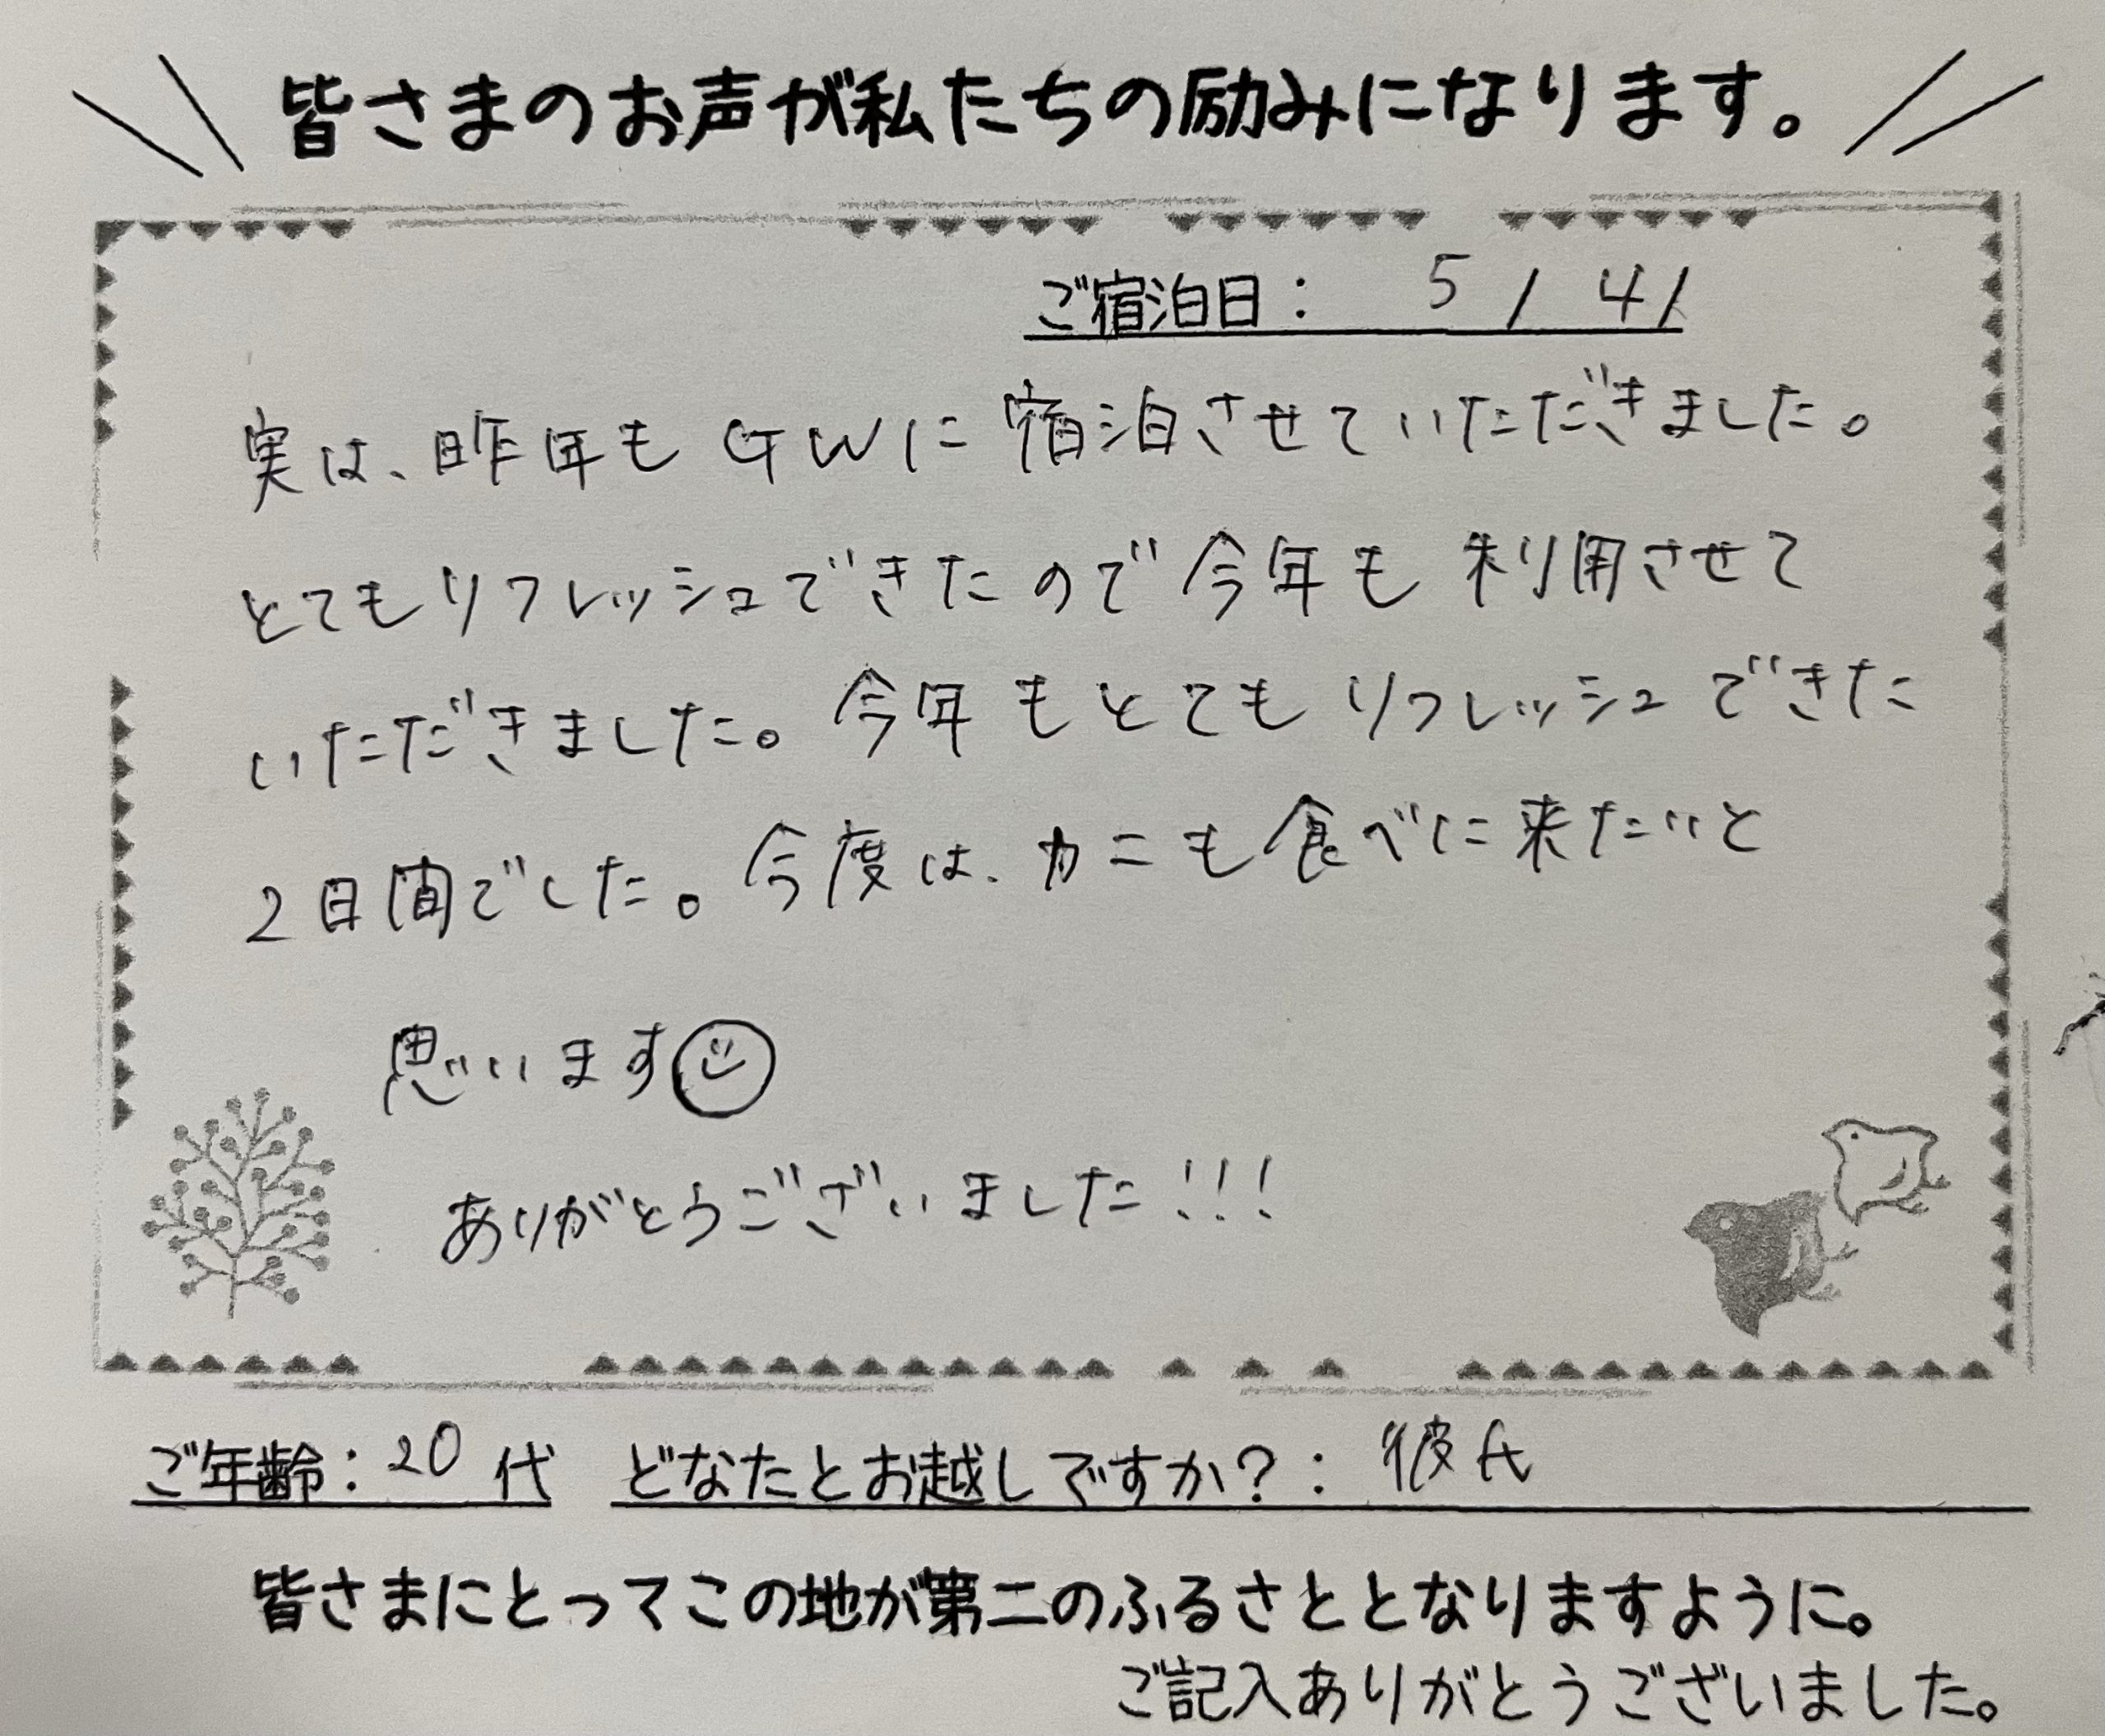 皆さまのお声が私たちの励みになります。
ご宿泊日： 5 / 4 /
実は、昨年もGWに宿泊させていただきました。
とてもリフレッシュできたので今年も利用させて
いただきました。今年もとてもリフレッシュできた
2日間でした。今度は、カニも食べに来たいと
思います
ありがとうございました!!!
ご年齢：20代 どなたとお越しですか？：彼氏
皆さまにとってこの地が第二のふるさととなりますように。
ご記入ありがとうございました。